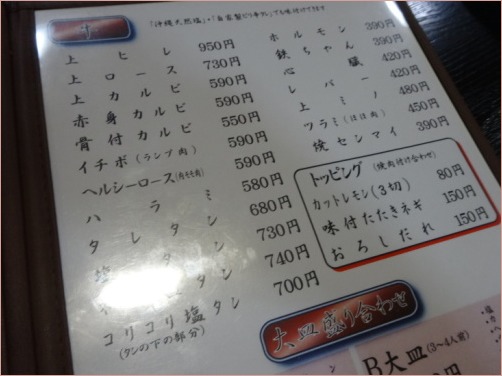 「沖縄天然塩」・「自家製だれ
上ヒレ 950円
上ロース 730円
上カルビ 590円
赤身カルビ 590円
骨付カルビ 550円
イチボ(ランプ肉) 590円
ヘルシーロース 590円
ハラミ 580円
タレタン 680円
塩 タン 730円
タン 740円
コリコリ塩タン 700円
(タンの下の部分)
ホルモン 390円
鉄ちゃん 390円
心臓 420円
レバー 420円
上ミノ 480円
ツラミ(ほほ肉) 450円
焼センマイ 390円
トッピング(焼肉付け合わせ)
カットレモン(3切) 80円
味付たたきネギ 150円
おろしだれ 150円
大皿盛り合わせ
B大皿(3〜4人前)